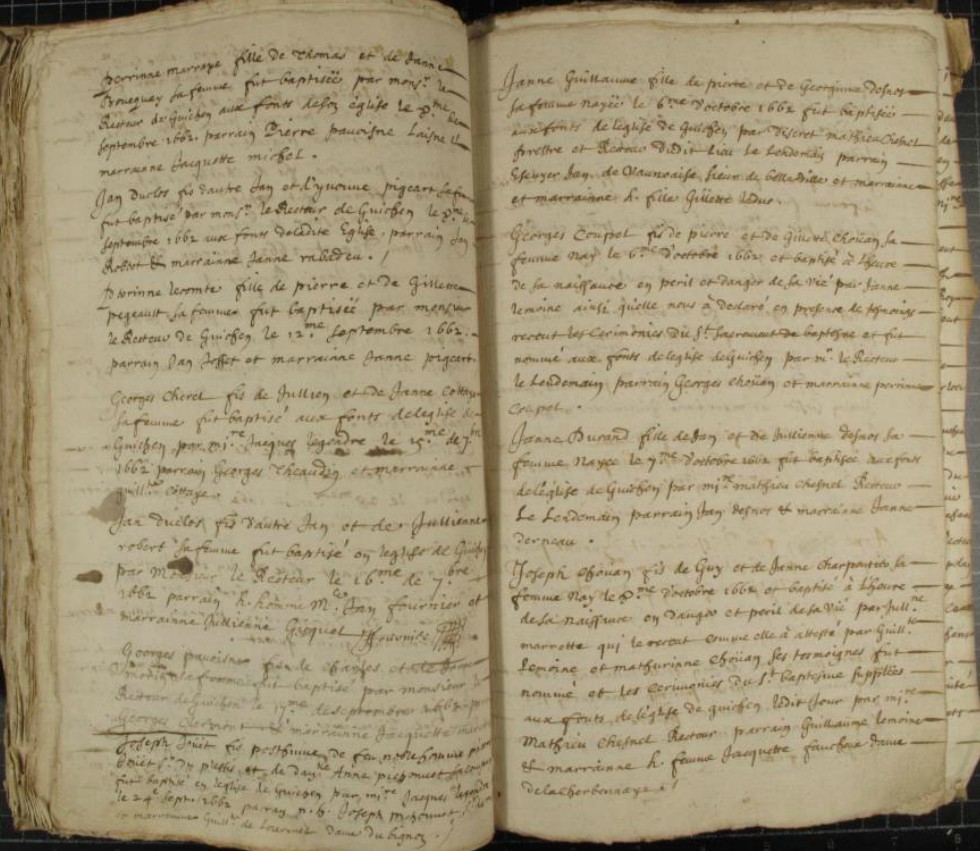 Perrinne marraye fille de Thomas et de Janne
Bouequay sa femme fut baptiseë par monsr le
Recteur de Guichen aux fonts de son église le
septembre 1662. parrain Pierre pauoisne Laisne et
marrainne Jacquette michel.
Jan Duclos fis dautre Jan et d'yuonne pigeart sa fem
fut baptisé par monsr le Recteur de Guichen le
septembre 1662 aux fonts de ladite Eglise. parrain Jan
Robert & marrainne Janne rabadeu.
Perrinne lecomte fille de pierre et de Gillenne
pegeault sa femme fut baptiseë par monsieur
le Recteur de Guichen le 12me septembre 1662.
parrain Jan Josset et marrainne Janne pigeart.
Georges Cherel fis de Jullien et de Janne Cottage
sa femme fut baptisé aux fonts de leglise de
Guichen par mire Jacques legendre le 15me de 7bre
1662 parrain Georges Theaudin et marrainne
guillte Cottage.
Jan Duclos fis dautre Jan et de Jullienne
robert sa femme fut baptisé en leglise de Guichen
par Monsieur le Recteur le 16me de 7bre
1662 parrain h. homme Me Jan fournier et
marrainne Jullienne Gicquel
Georges pauoisne fis de Charles et de Janne
sa femme fut baptisé par monsieur le
Recteur de Guichen le 17me de septembre 1662. pr
Georges Clermont & marrainne Jacquette
Joseph Joüet fis posthume de feu noble homme pierre
Joüet sr du plessis et de dam Anne
fut baptisé en leglise de Guichen par mire Jacques legendre
le 24e sept. 1662 parain n. h. Joseph
et marrainne Guillte de dame du bignon.
Janne Guillaume fille de pierre et de Georginne desnos
sa femme nayëe le 6me d'octobre 1662 fut baptisée
aux fonts de leglise de Guichen par discret mathieu Chesnel
prestre et Recteur dudit lieu le Lendemain parrain
Escuyer Jan de Vaunoaise sieur de belleville et marrainne
et marrainne h. fille Gillette leduc.
Georges Coupel fis de pierre et de Guillte Choüan sa
femme nay le 6me d'octobre 1662 et baptisé à Lheure
de sa naissance en peril et danger de sa vie par Janne
lemoine ainsi quelle nous à declaré en presence de tesmoings
receut les Cerimonies du St sacrement de baptesme et fut
nommé aux fonts de leglise de Guichen par mr le Recteur
le Lendemain parrain Georges Choüan et marrainne perrinne
Coupel.
Janne Durand fille de Jan et de Jullienne desnos sa
femme Nayëe le 7me d'octobre 1662 fut baptisée aux fonts
de léglise de Guichen par mire mathieu Chesnel Recteur
Le Lendemain parrain Jan desnos & marrainne Janne
derneau.
Joseph Choüan fis de Guy et de Janne Charpentier sa
femme Nay le me d'octobre 1662 et baptisé à Lheure
de sa Naissance en danger et peril de sa vie par Jullne
marrotte qui le receut comme elle à attesté par Guillte
Lemoine et mathurinne Choüan ses tesmoignes fut
nommé et les Cerimonies du St baptesme supplées
aux fonts de léglise de guichen ledit Jour par mire
Mathieu Chesnel Recteur. parrain Guillaume lemoine
& marrainne h. femme Jacquette faucheux dame
de la cherbonnaye.